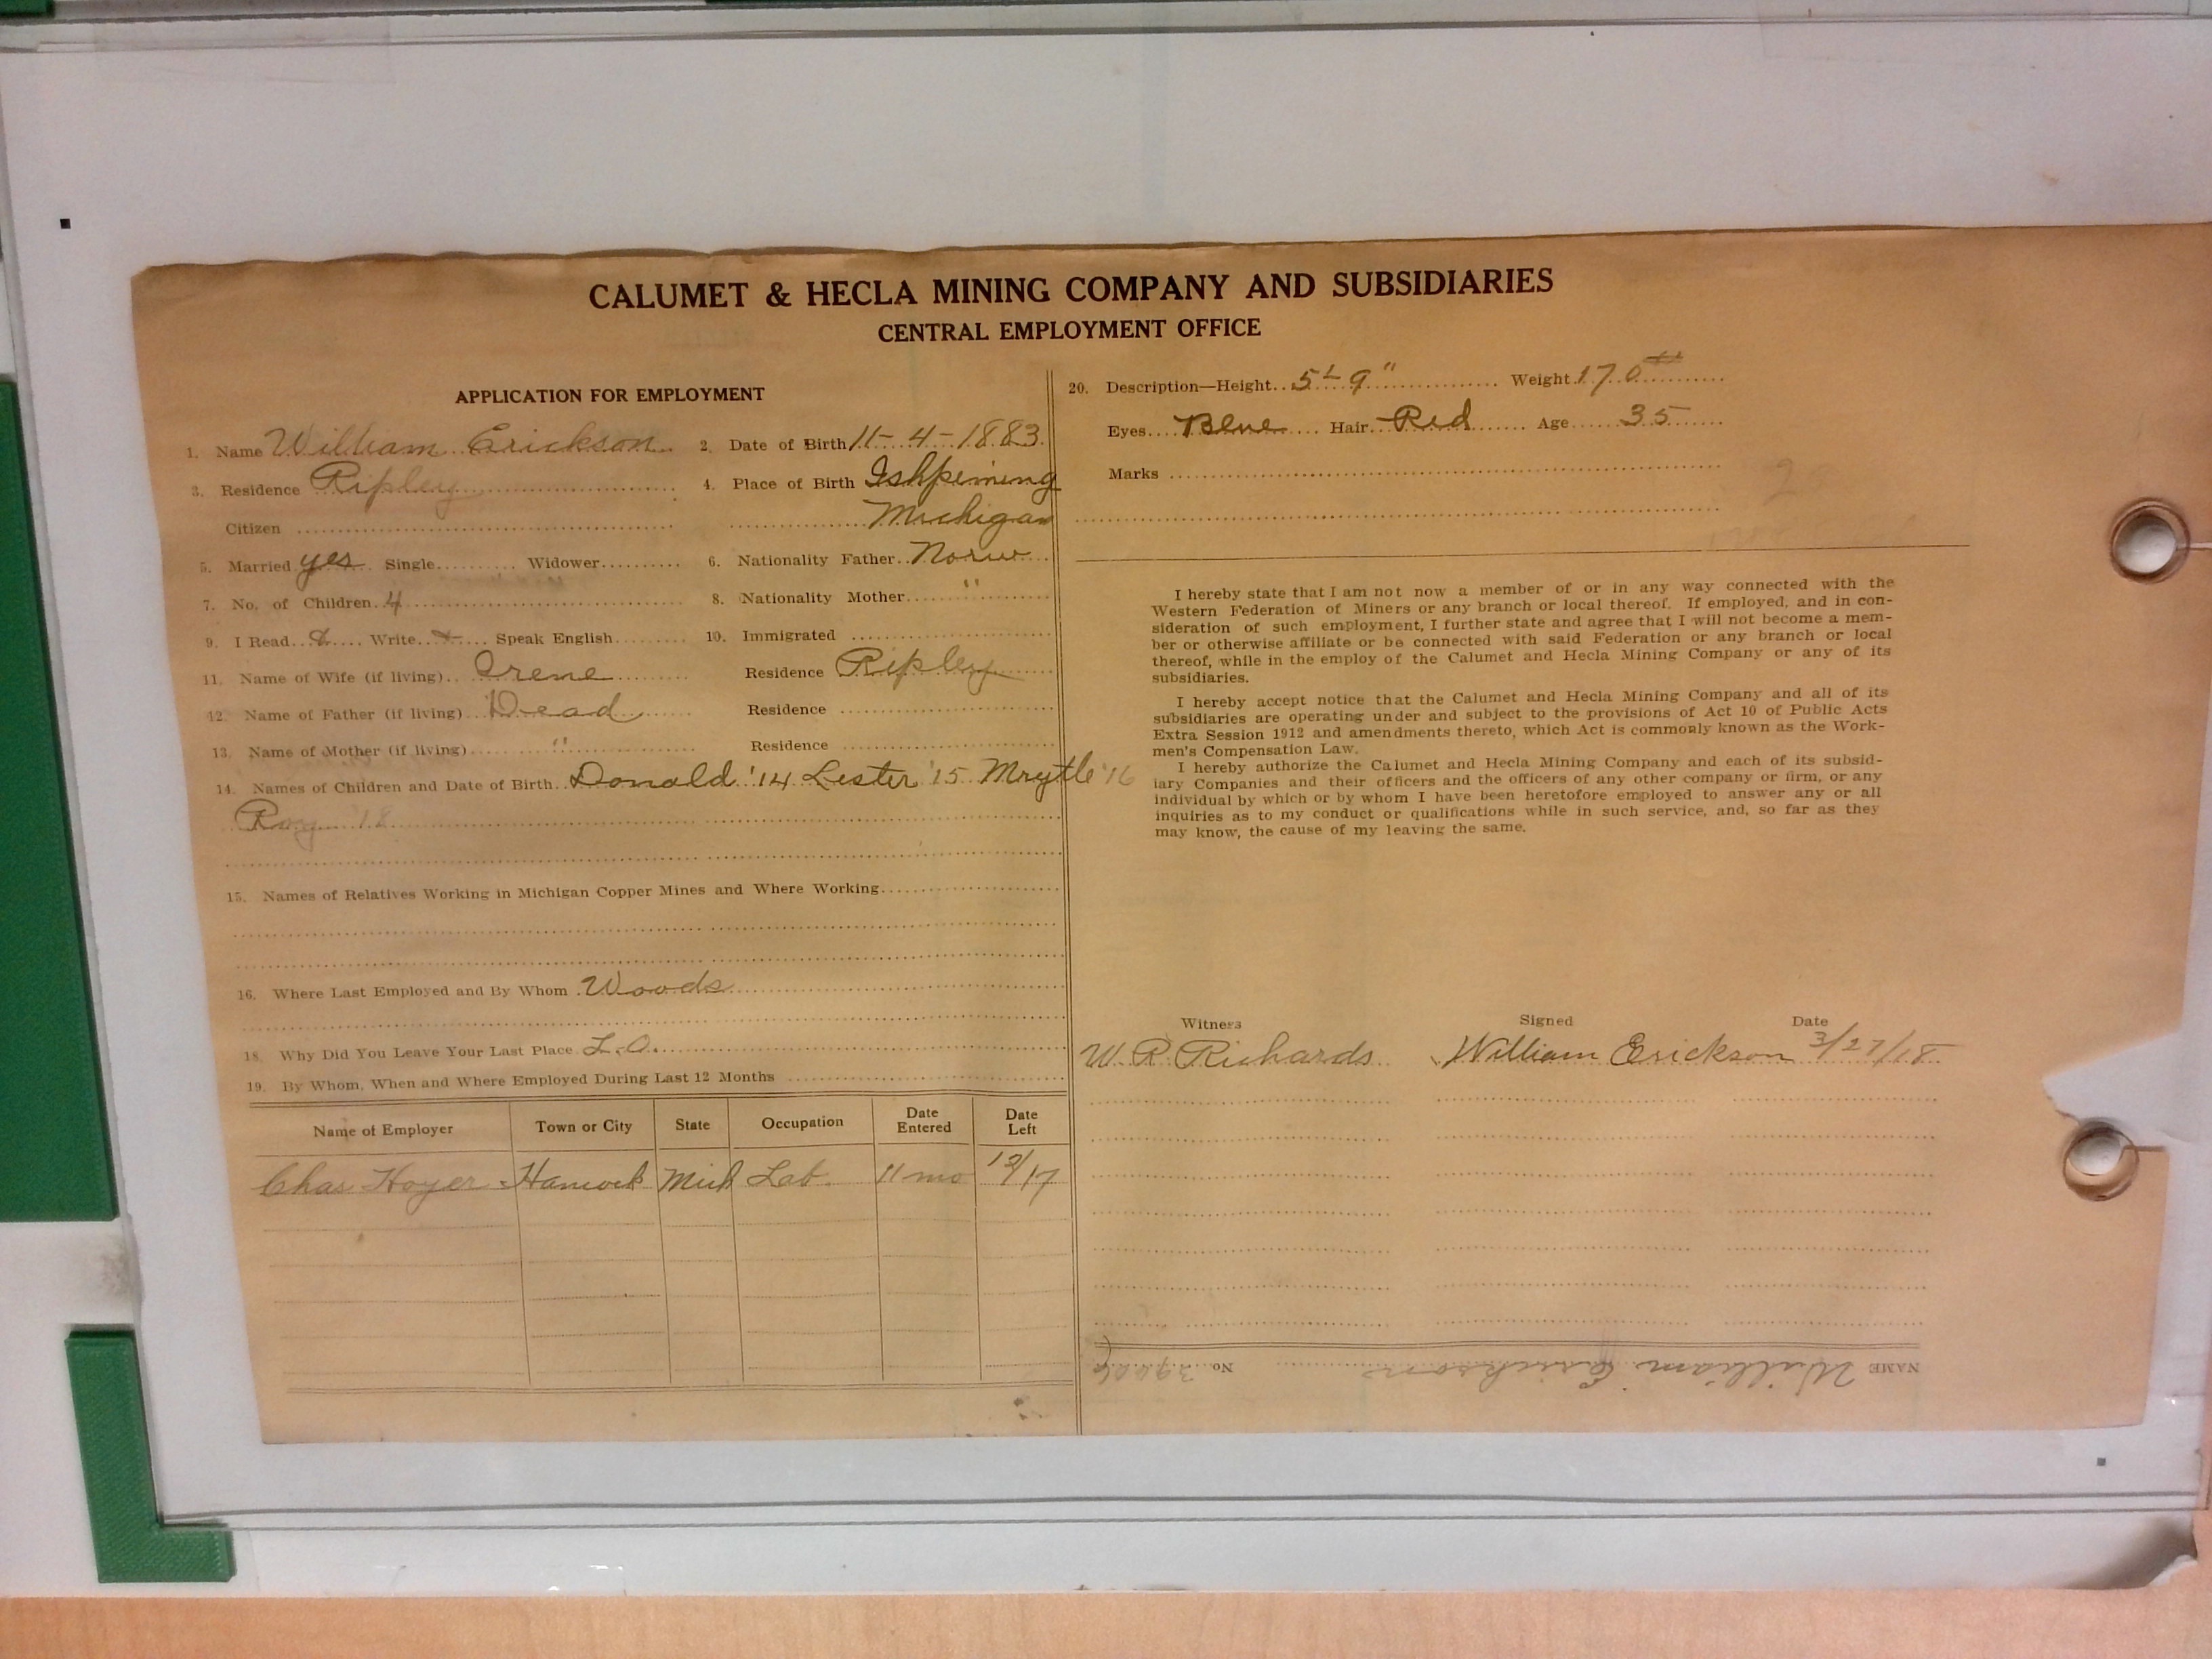 CALUMET & HECLA MINING COMPANY AND SUBSIDIARIES
CENTRAL EMPLOYMENT OFFICE
APPLICATION FOR EMPLOYMENT
1. Name William Erickson 2. Date of Birth 11-4-1883
3. Residence Ripley 4. Place of Birth Ishpeming
Citizen Michigan
5. Married yes Single Widower 6. Nationality Father Norw
7. No. of Children 4 8. Nationality Mother "
9. I Read Write Speak English 10. Immigrated
11. Name of Wife (if living) Irene Residence Ripley
12. Name of Father (if living) Dead Residence
13. Name of Mother (if living) " Residence
14. Names of Children and Date of Birth Donald '14 Lester '15 Mrytle '16
Roy '18
15. Names of Relatives Working in Michigan Copper Mines and Where Working
16. Where Last Employed and By Whom Woods
18. Why Did You Leave Your Last Place L.O.
19. By Whom, When and Where Employed During Last 12 Months
Name of Employer Town or City State Occupation Date Entered Date Left
Chas Hoyer Hancock Mich Lab. 11 mo 12/17
20. Description—Height 5' 9" Weight 170 #
Eyes Blue Hair Red Age 35
Marks
2
I hereby state that I am not now a member of or in any way connected with the
Western Federation of Miners or any branch or local thereof. If employed, and in con-
sideration of such employment, I further state and agree that I will not become a mem-
ber or otherwise affiliate or be connected with said Federation or any branch or local
thereof, while in the employ of the Calumet and Hecla Mining Company or any of its
subsidiaries.
I hereby accept notice that the Calumet and Hecla Mining Company and all of its
subsidiaries are operating under and subject to the provisions of Act 10 of Public Acts
Extra Session 1912 and amendments thereto, which Act is commonly known as the Work-
men's Compensation Law.
I hereby authorize the Calumet and Hecla Mining Company and each of its subsid-
iary Companies and their officers and the officers of any other company or firm, or any
individual by which or by whom I have been heretofore employed to answer any or all
inquiries as to my conduct or qualifications while in such service, and, so far as they
may know, the cause of my leaving the same.
Witness Signed Date
W. R. Richards William Erickson 3/27/18
NAME William Erickson No.